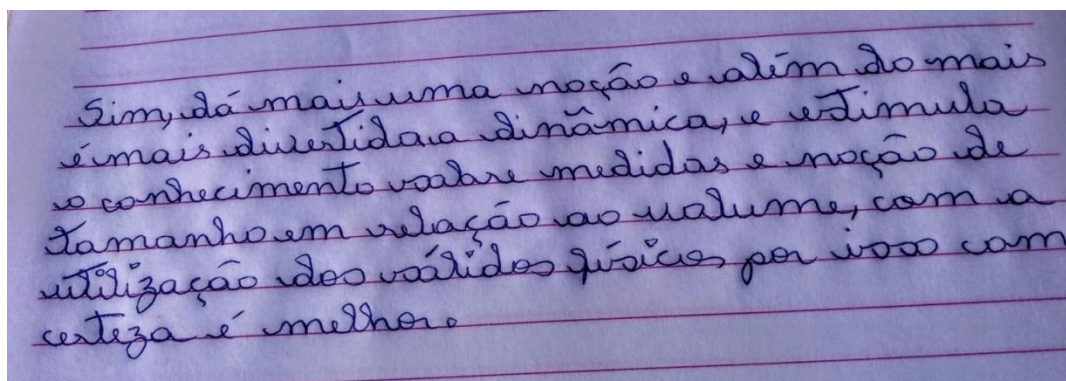 Sim, dá mais uma noção e além do mais
é mais divertida a dinâmica, e estimula
o conhecimento sobre medidas e noção de
tamanho em relação ao volume, com a
utilização dos sólidos físicos por isso com
certeza é melhor.